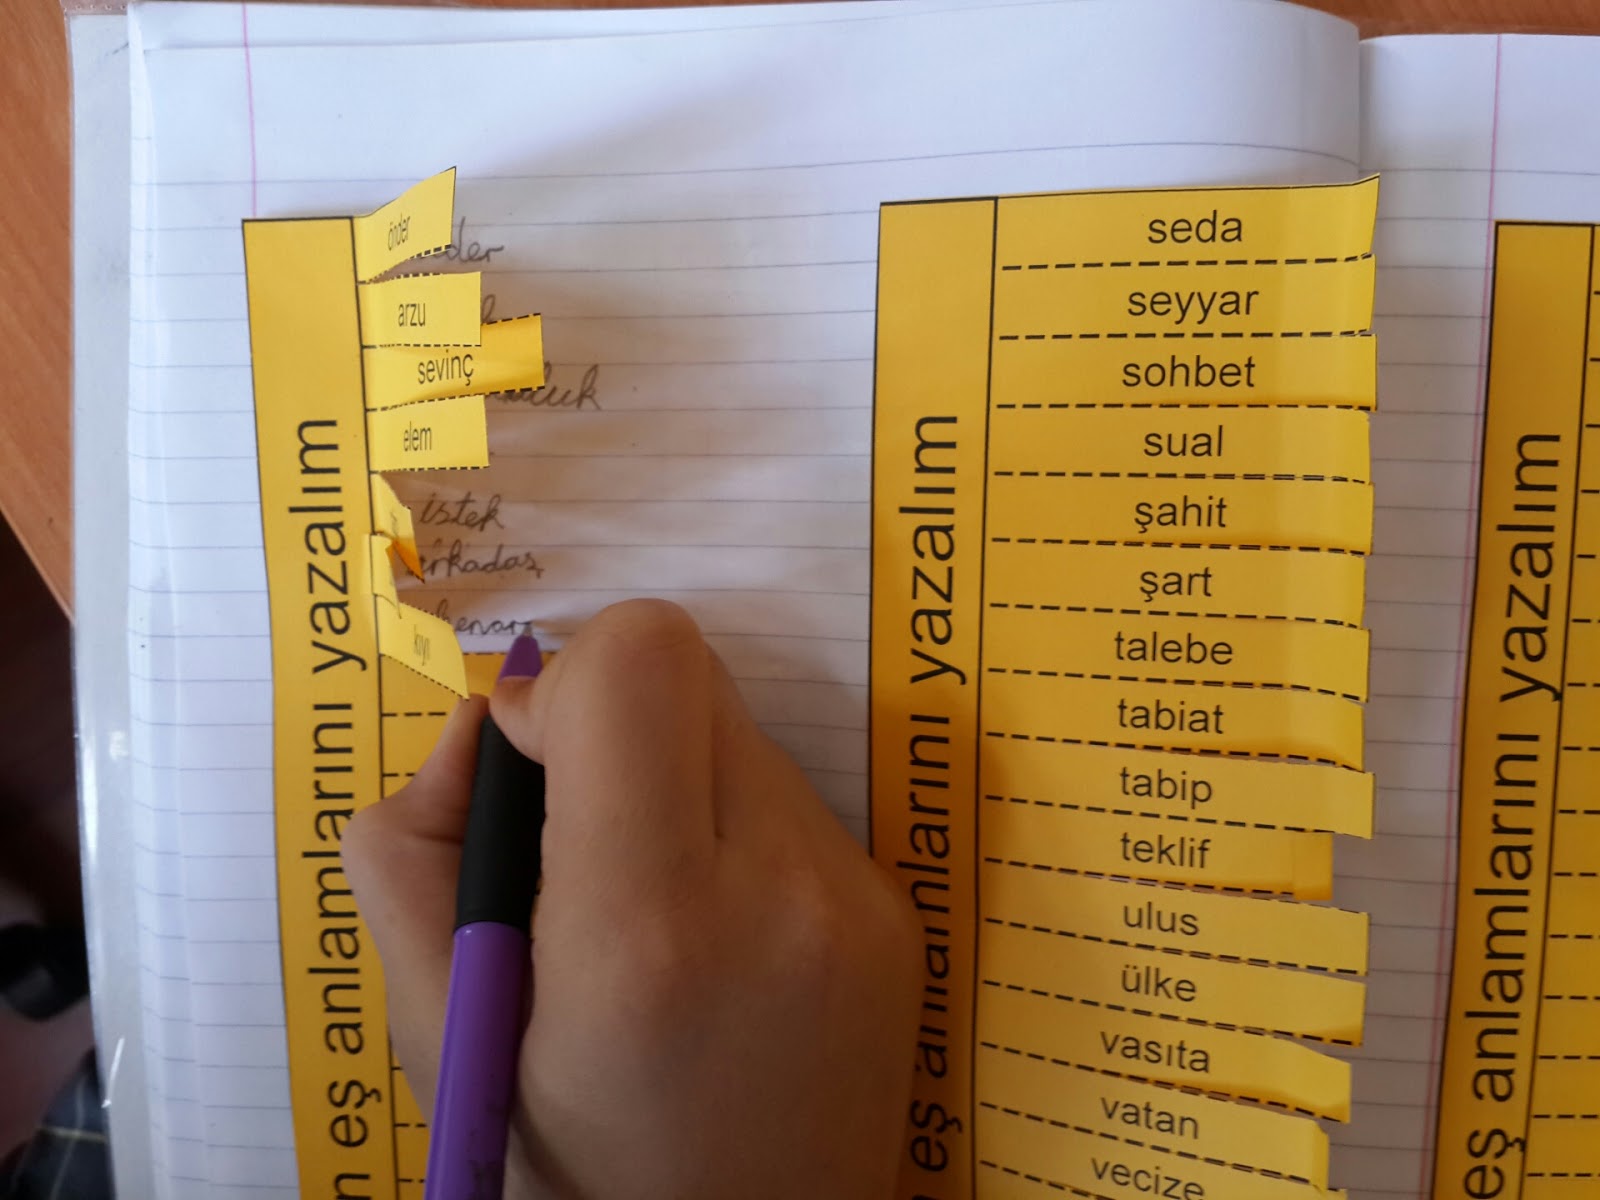 önder
arzu
sevinç
elem
istek
kıyı
n eş anlamlarını yazalım
seda
seyyar
sohbet
sual
şahit
şart
talebe
tabiat
tabip
teklif
ulus
ülke
vasıta
vatan
vecize
n eş anlamlarını yazalım
eş anlamlarını yazalım